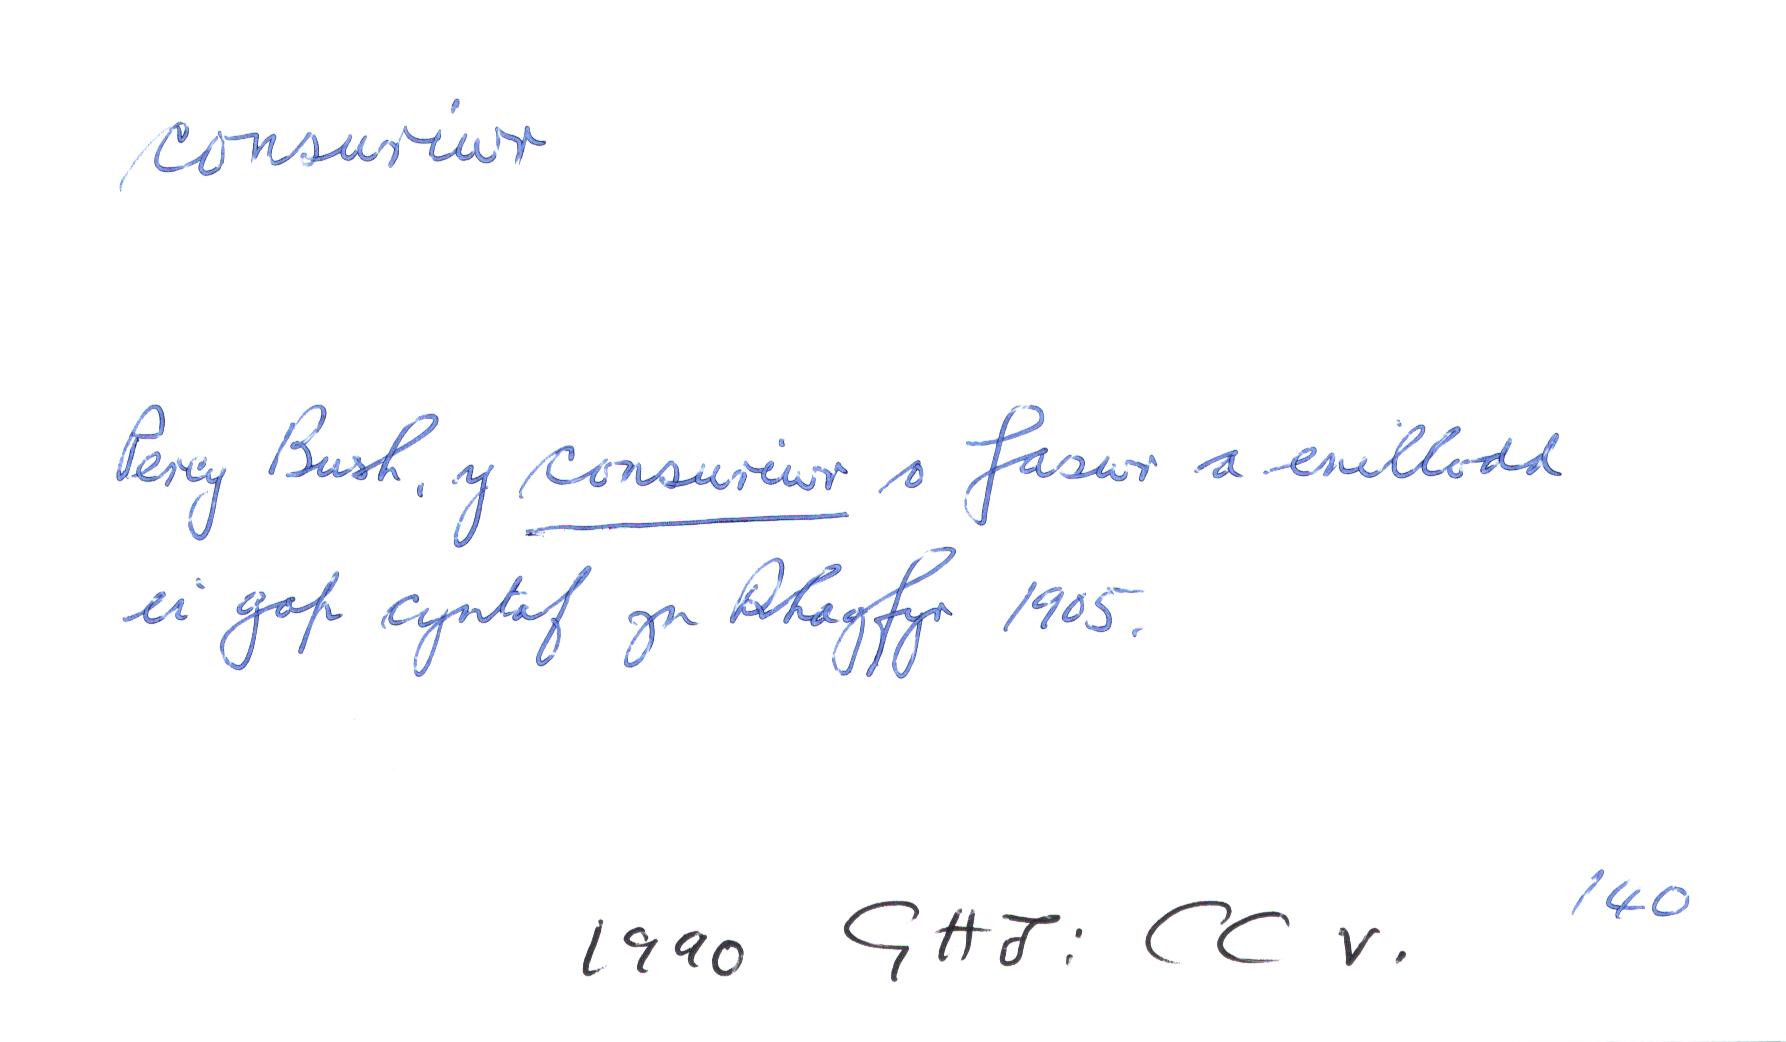 consuriwr
Percy Bush, y consuriwr o faswr a enillodd
ei gap cyntaf yn Rhagfyr 1905.
140
1990 GHJ: CC v.